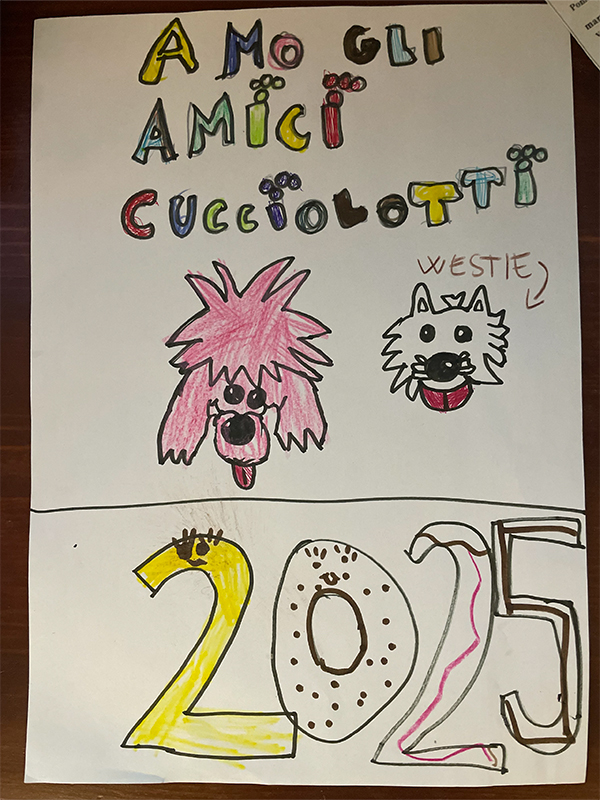 AMO GLI
AMICI
CUCCIOLOTTI
WESTIE
2025